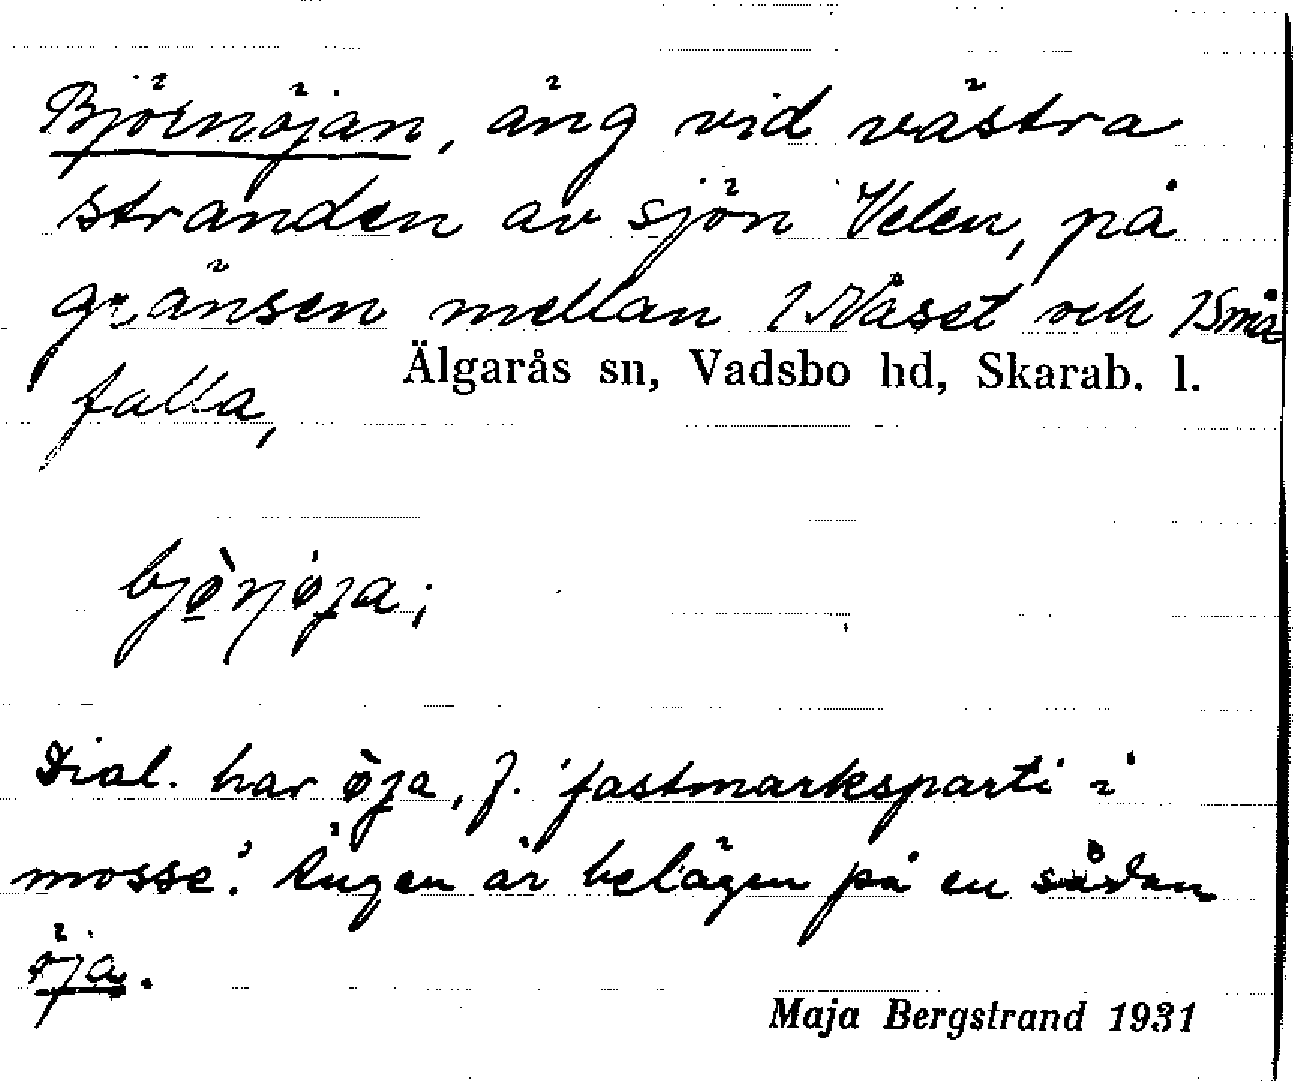 Björnöjan, äng vid västra
stranden av sjön Velen, på
gränsen mellan 1 Näset och 1 Små
falla,
Älgarås sn, Vadsbo hd, Skarab. l.
Dial. har öja, f. 'fastmarksparti i
mosse'. Ängen är belägen på en sådan
öja.
Maja Bergstrand 1931